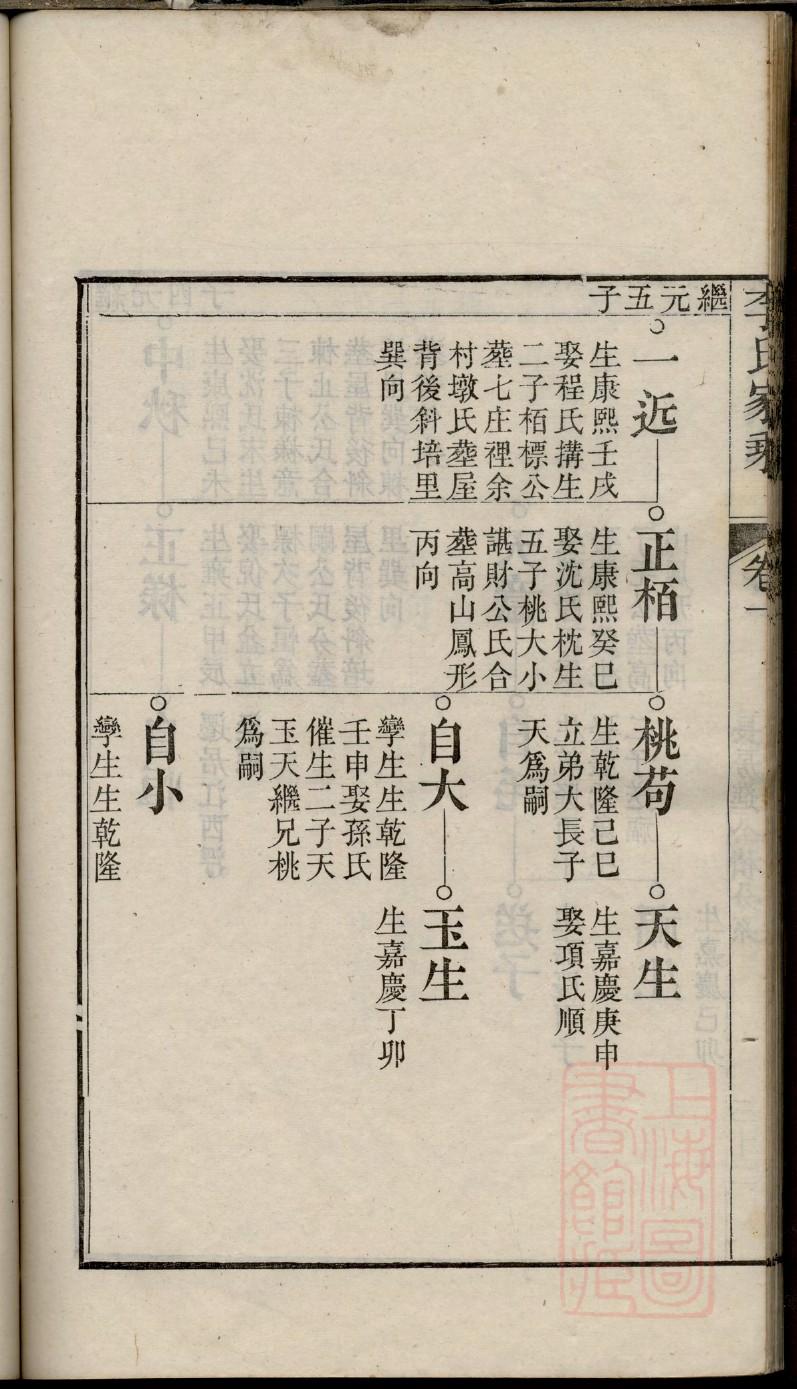 李氏家乘
卷一
繼元五子
一近
生康熙壬戌
娶程氏搆生
二子栢標公
塟七庄裡余
村墩氏塟屋
背後斜培里
巽向
正栢
生康熙癸巳
娶沈氏枕生
五子桃大小
諶財公氏合
塟高山鳳形
丙向
桃苟
生乾隆己巳
立弟大長子
天爲嗣
天生
生嘉慶庚申
娶項氏順
自大
孿生生乾隆
壬申娶孫氏
催生二子天
玉天繼兄桃
爲嗣
玉生
生嘉慶丁卯
自小
孿生生乾隆
上海圖書館藏